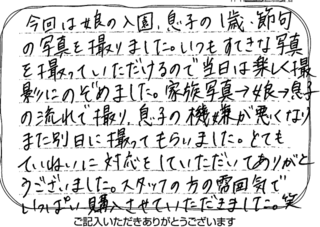 今回は娘の入園、息子の1歳・節句
の写真を撮りました。いつもすてきな写真
を撮っていただけるので当日は楽しく撮
影にのぞめました。家族写真→娘→息子
の流れで撮り、息子の機嫌が悪くなり
また別日に撮ってもらいました。とても
ていねいに対応をしていただいてありがと
うございました。スタッフの方の雰囲気で
いっぱい購入させていただきました。笑
ご記入いただきありがとうございます